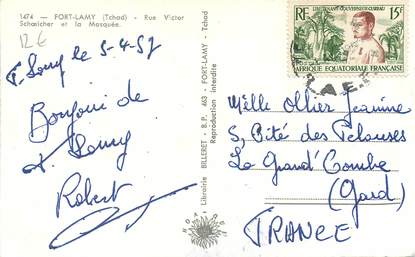 1474 — FORT-LAMY (Tchad) - Rue Victor
Schœlcher et la Mosquée.
12€
F. Lamy le 5-4-57
Bonjour de
Ft Lamy
Robert
Librairie BILLERET - B.P. 463 - FORT-LAMY - Tchad
Reproduction interdite
HOA-QUI
LIEUTENANT GOUVERNEUR CUREAU
RF 15F
AFRIQUE EQUATORIALE FRANÇAISE
A.E.F.
Melle Ollier Jeannine
5, Cité des Pelouses
La Grand' Combe
(Gard)
FRANCE